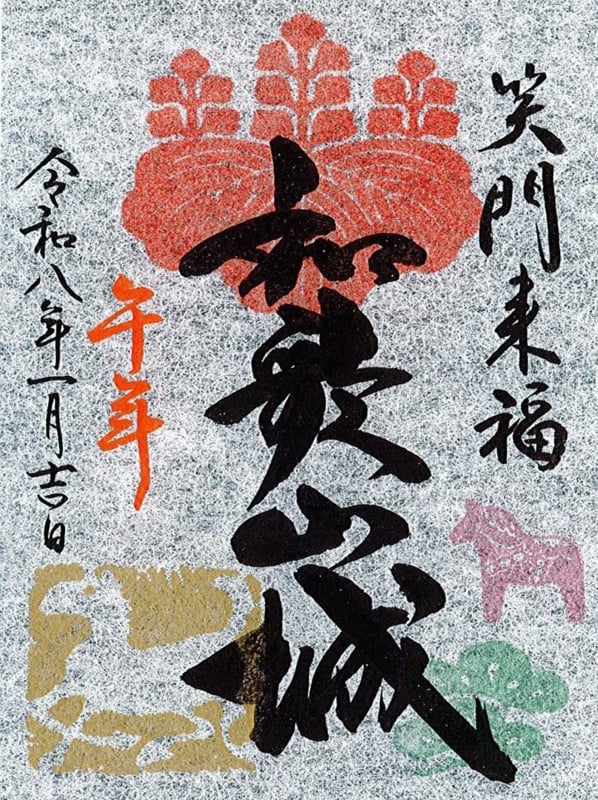 笑門来福
和歌山城
午年
令和八年一月吉日